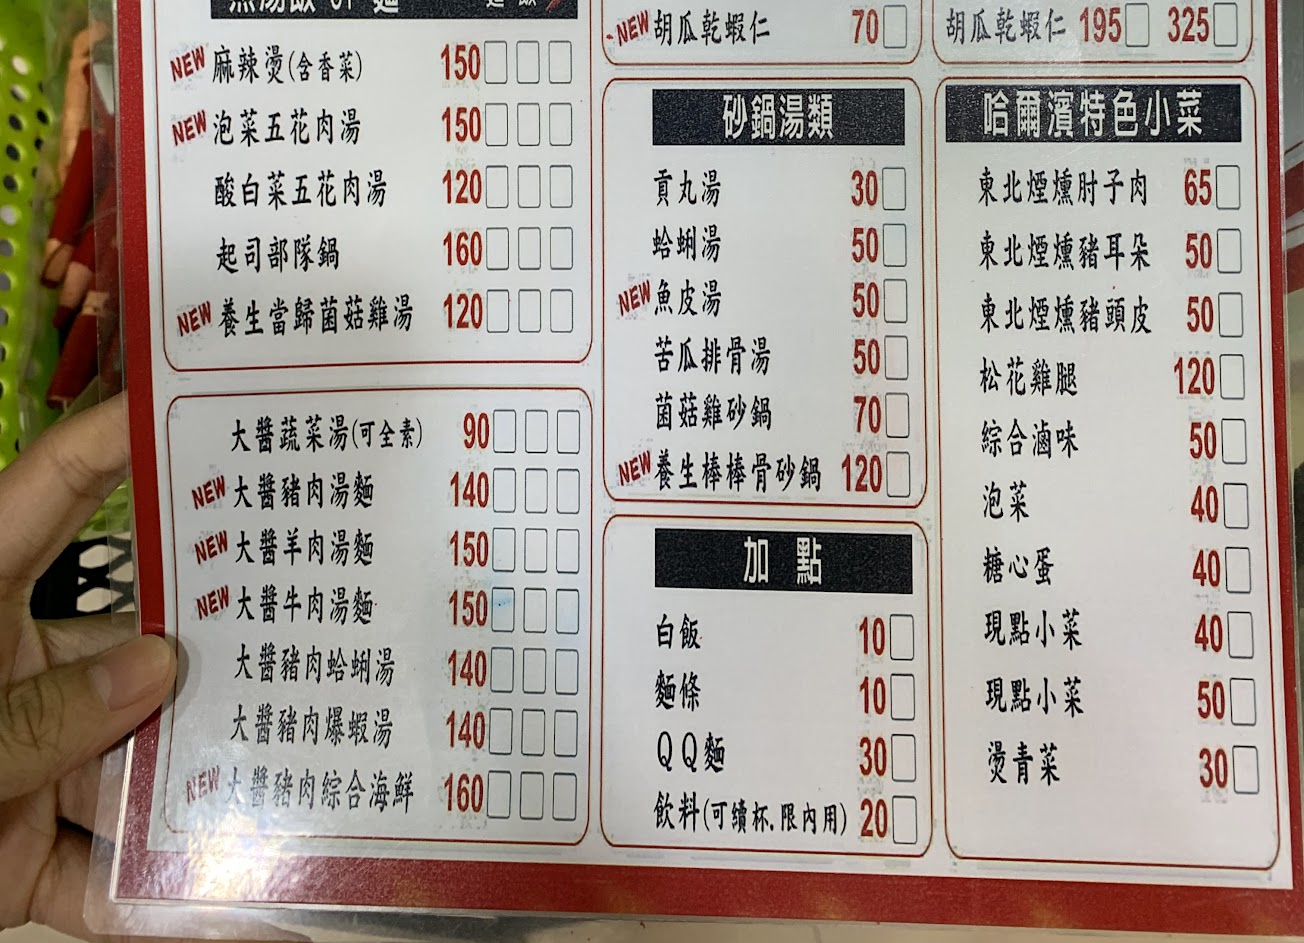 NEW 麻辣燙(含香菜) 150
NEW 泡菜五花肉湯 150
酸白菜五花肉湯 120
起司部隊鍋 160
NEW 養生當歸菌菇雞湯 120
大醬蔬菜湯(可全素) 90
NEW 大醬豬肉湯麵 140
NEW 大醬羊肉湯麵 150
NEW 大醬牛肉湯麵 150
大醬豬肉蛤蜊湯 140
大醬豬肉爆蝦湯 140
NEW 大醬豬肉綜合海鮮 160
NEW 胡瓜乾蝦仁 70
砂鍋湯類
貢丸湯 30
蛤蜊湯 50
NEW 魚皮湯 50
苦瓜排骨湯 50
菌菇雞砂鍋 70
NEW 養生棒棒骨砂鍋 120
加點
白飯 10
麵條 10
QQ麵 30
飲料(可續杯.限內用) 20
胡瓜乾蝦仁 195 325
哈爾濱特色小菜
東北煙燻肘子肉 65
東北煙燻豬耳朵 50
東北煙燻豬頭皮 50
松花雞腿 120
綜合滷味 50
泡菜 40
糖心蛋 40
現點小菜 40
現點小菜 50
燙青菜 30